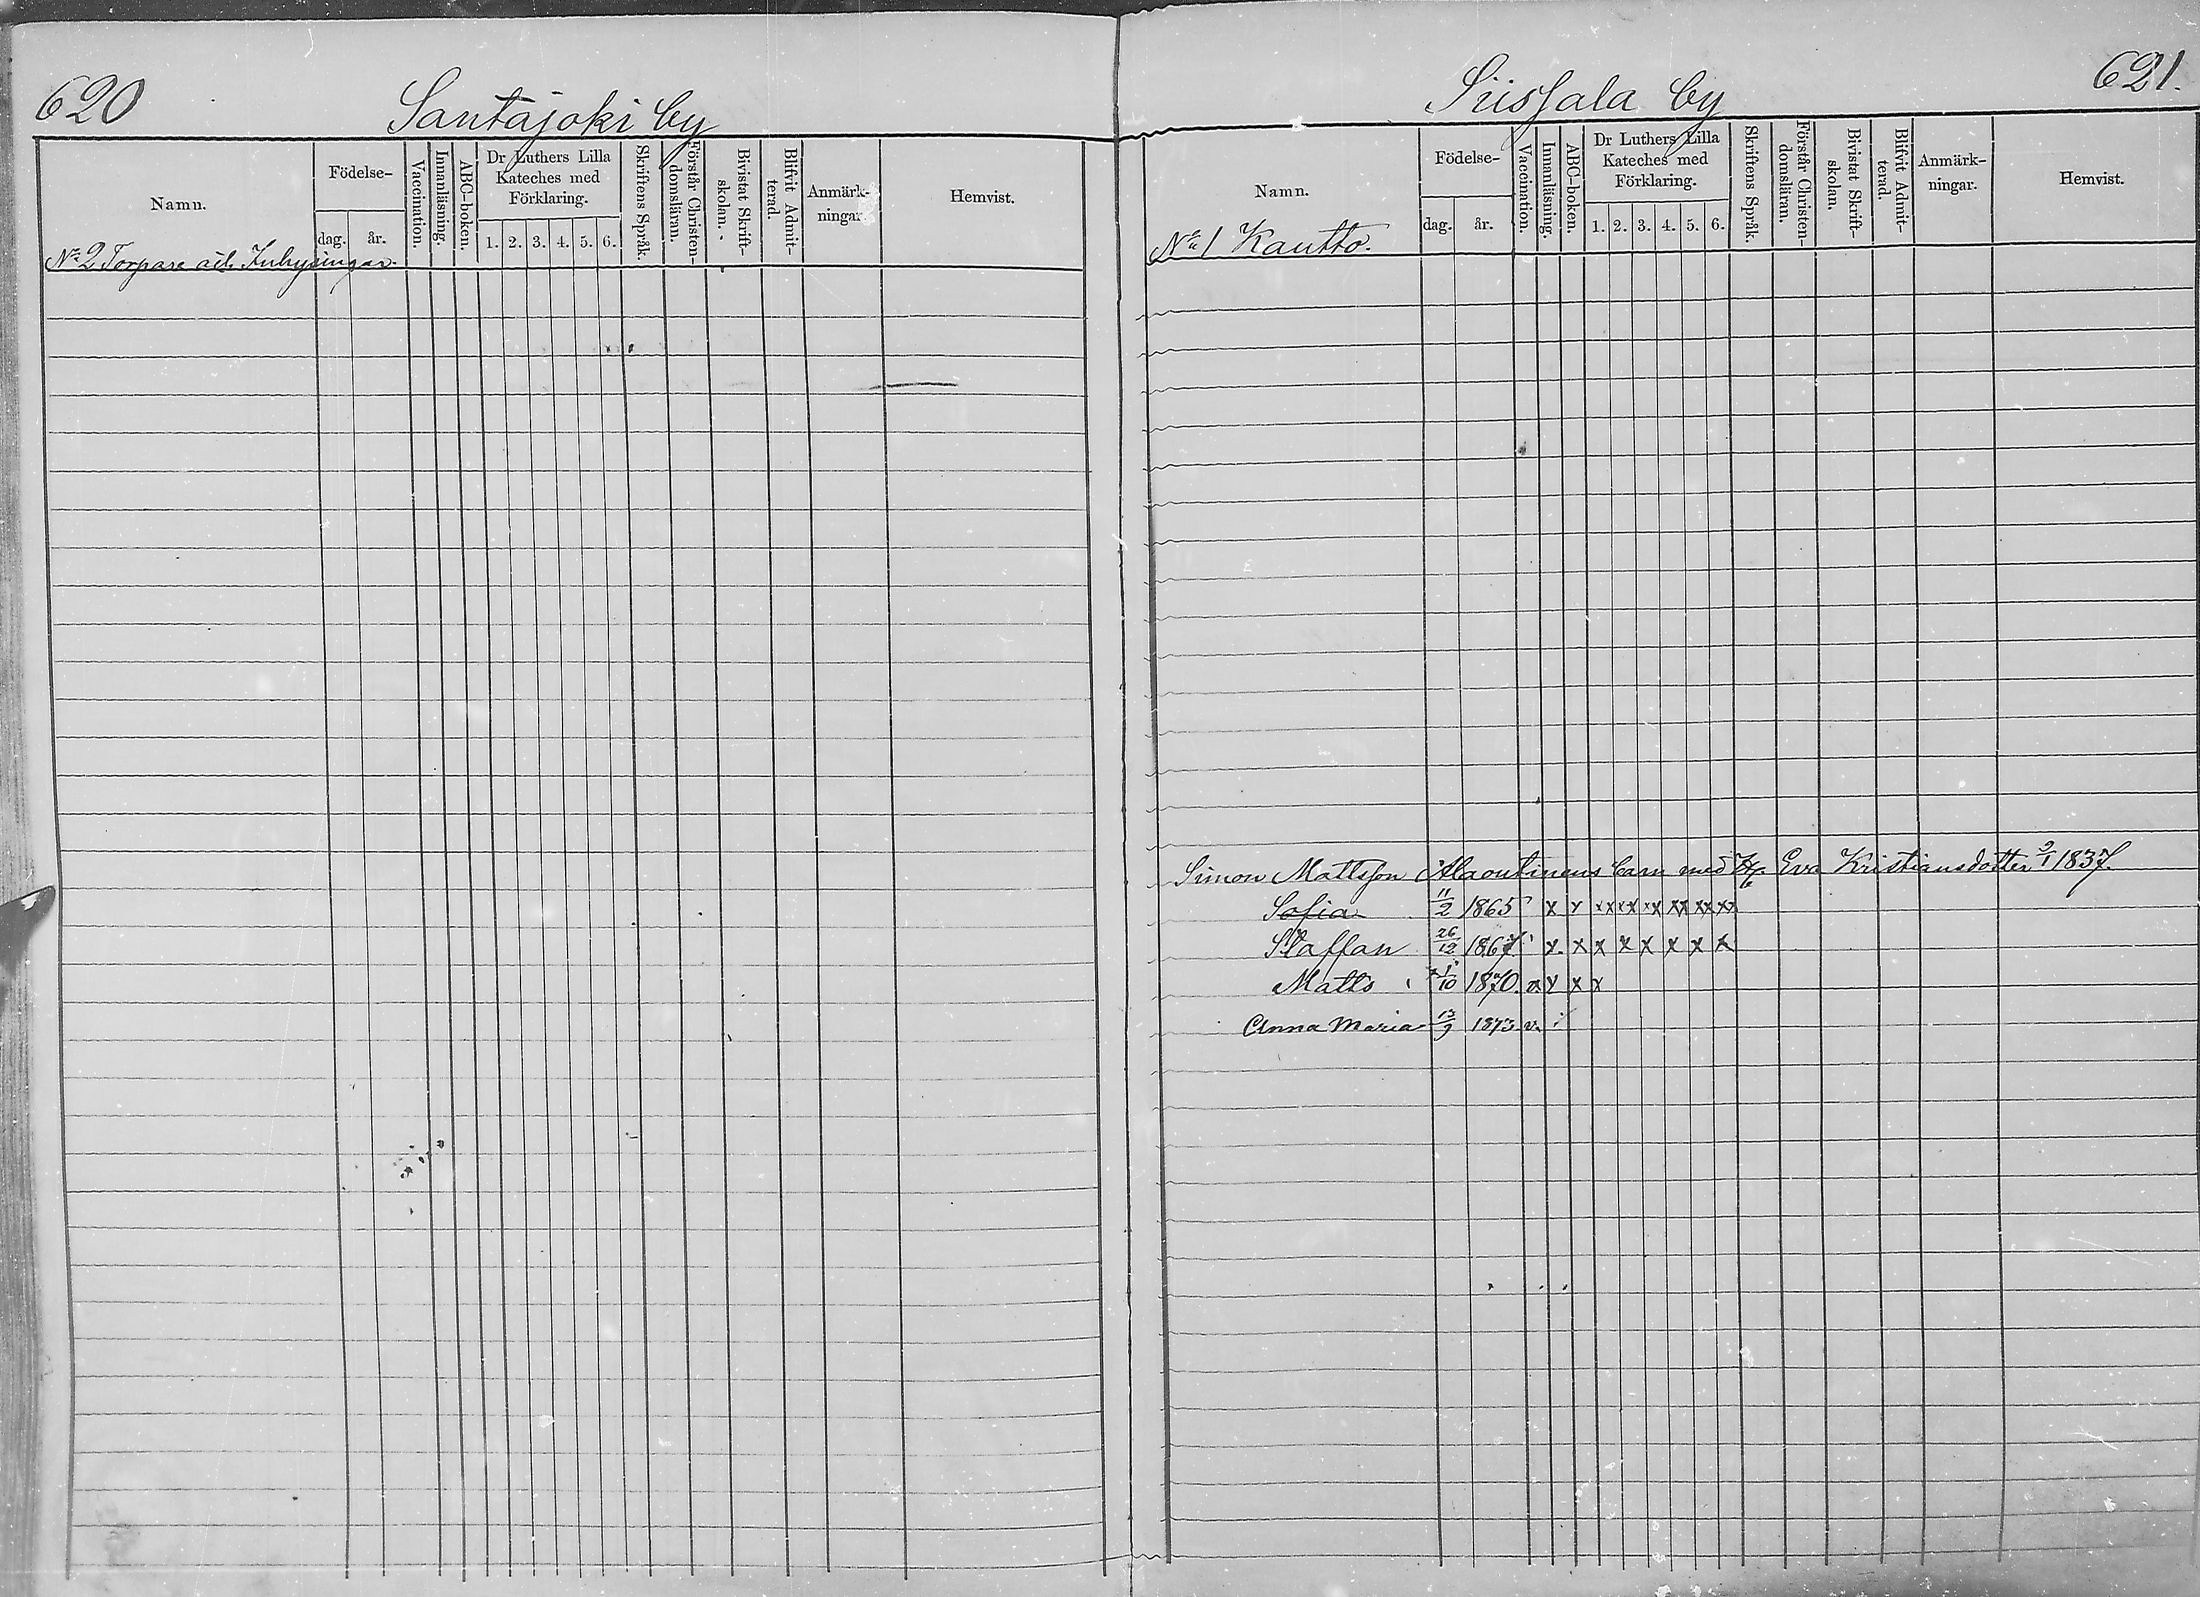 620
Santajoki by
Namn.
Födelse-
dag.
år.
Vaccination.
Innanläsning.
ABC-boken.
Dr Luthers Lilla
Kateches med
Förklaring.
1. 2. 3. 4. 5. 6.
Skriftens Språk.
Förstår Christen-
domsläran.
Bivistat Skrift-
skolan.
Blifvit Admit-
terad.
Anmärk-
ningar.
Hemvist.
No 2 Torpare och Inhysingar.
621.
Siissala by
Namn.
Födelse-
dag.
år.
Vaccination.
Innanläsning.
ABC-boken.
Dr Luthers Lilla
Kateches med
Förklaring.
1. 2. 3. 4. 5. 6.
Skriftens Språk.
Förstår Christen-
domsläran.
Bivistat Skrift-
skolan.
Blifvit Admit-
terad.
Anmärk-
ningar.
Hemvist.
No 1 Kautto.
Simon Mattsson Alaoutinens barn med Eva Kristiansdotter 2/1 1837.
Sofia 11/2 1865 x x xx xx xx xx xx xx
Staffan 26/12 1867 x x x x x x x x
Matts 1/10 1870. v. x x x
Anna Maria 13/9 1873 v.